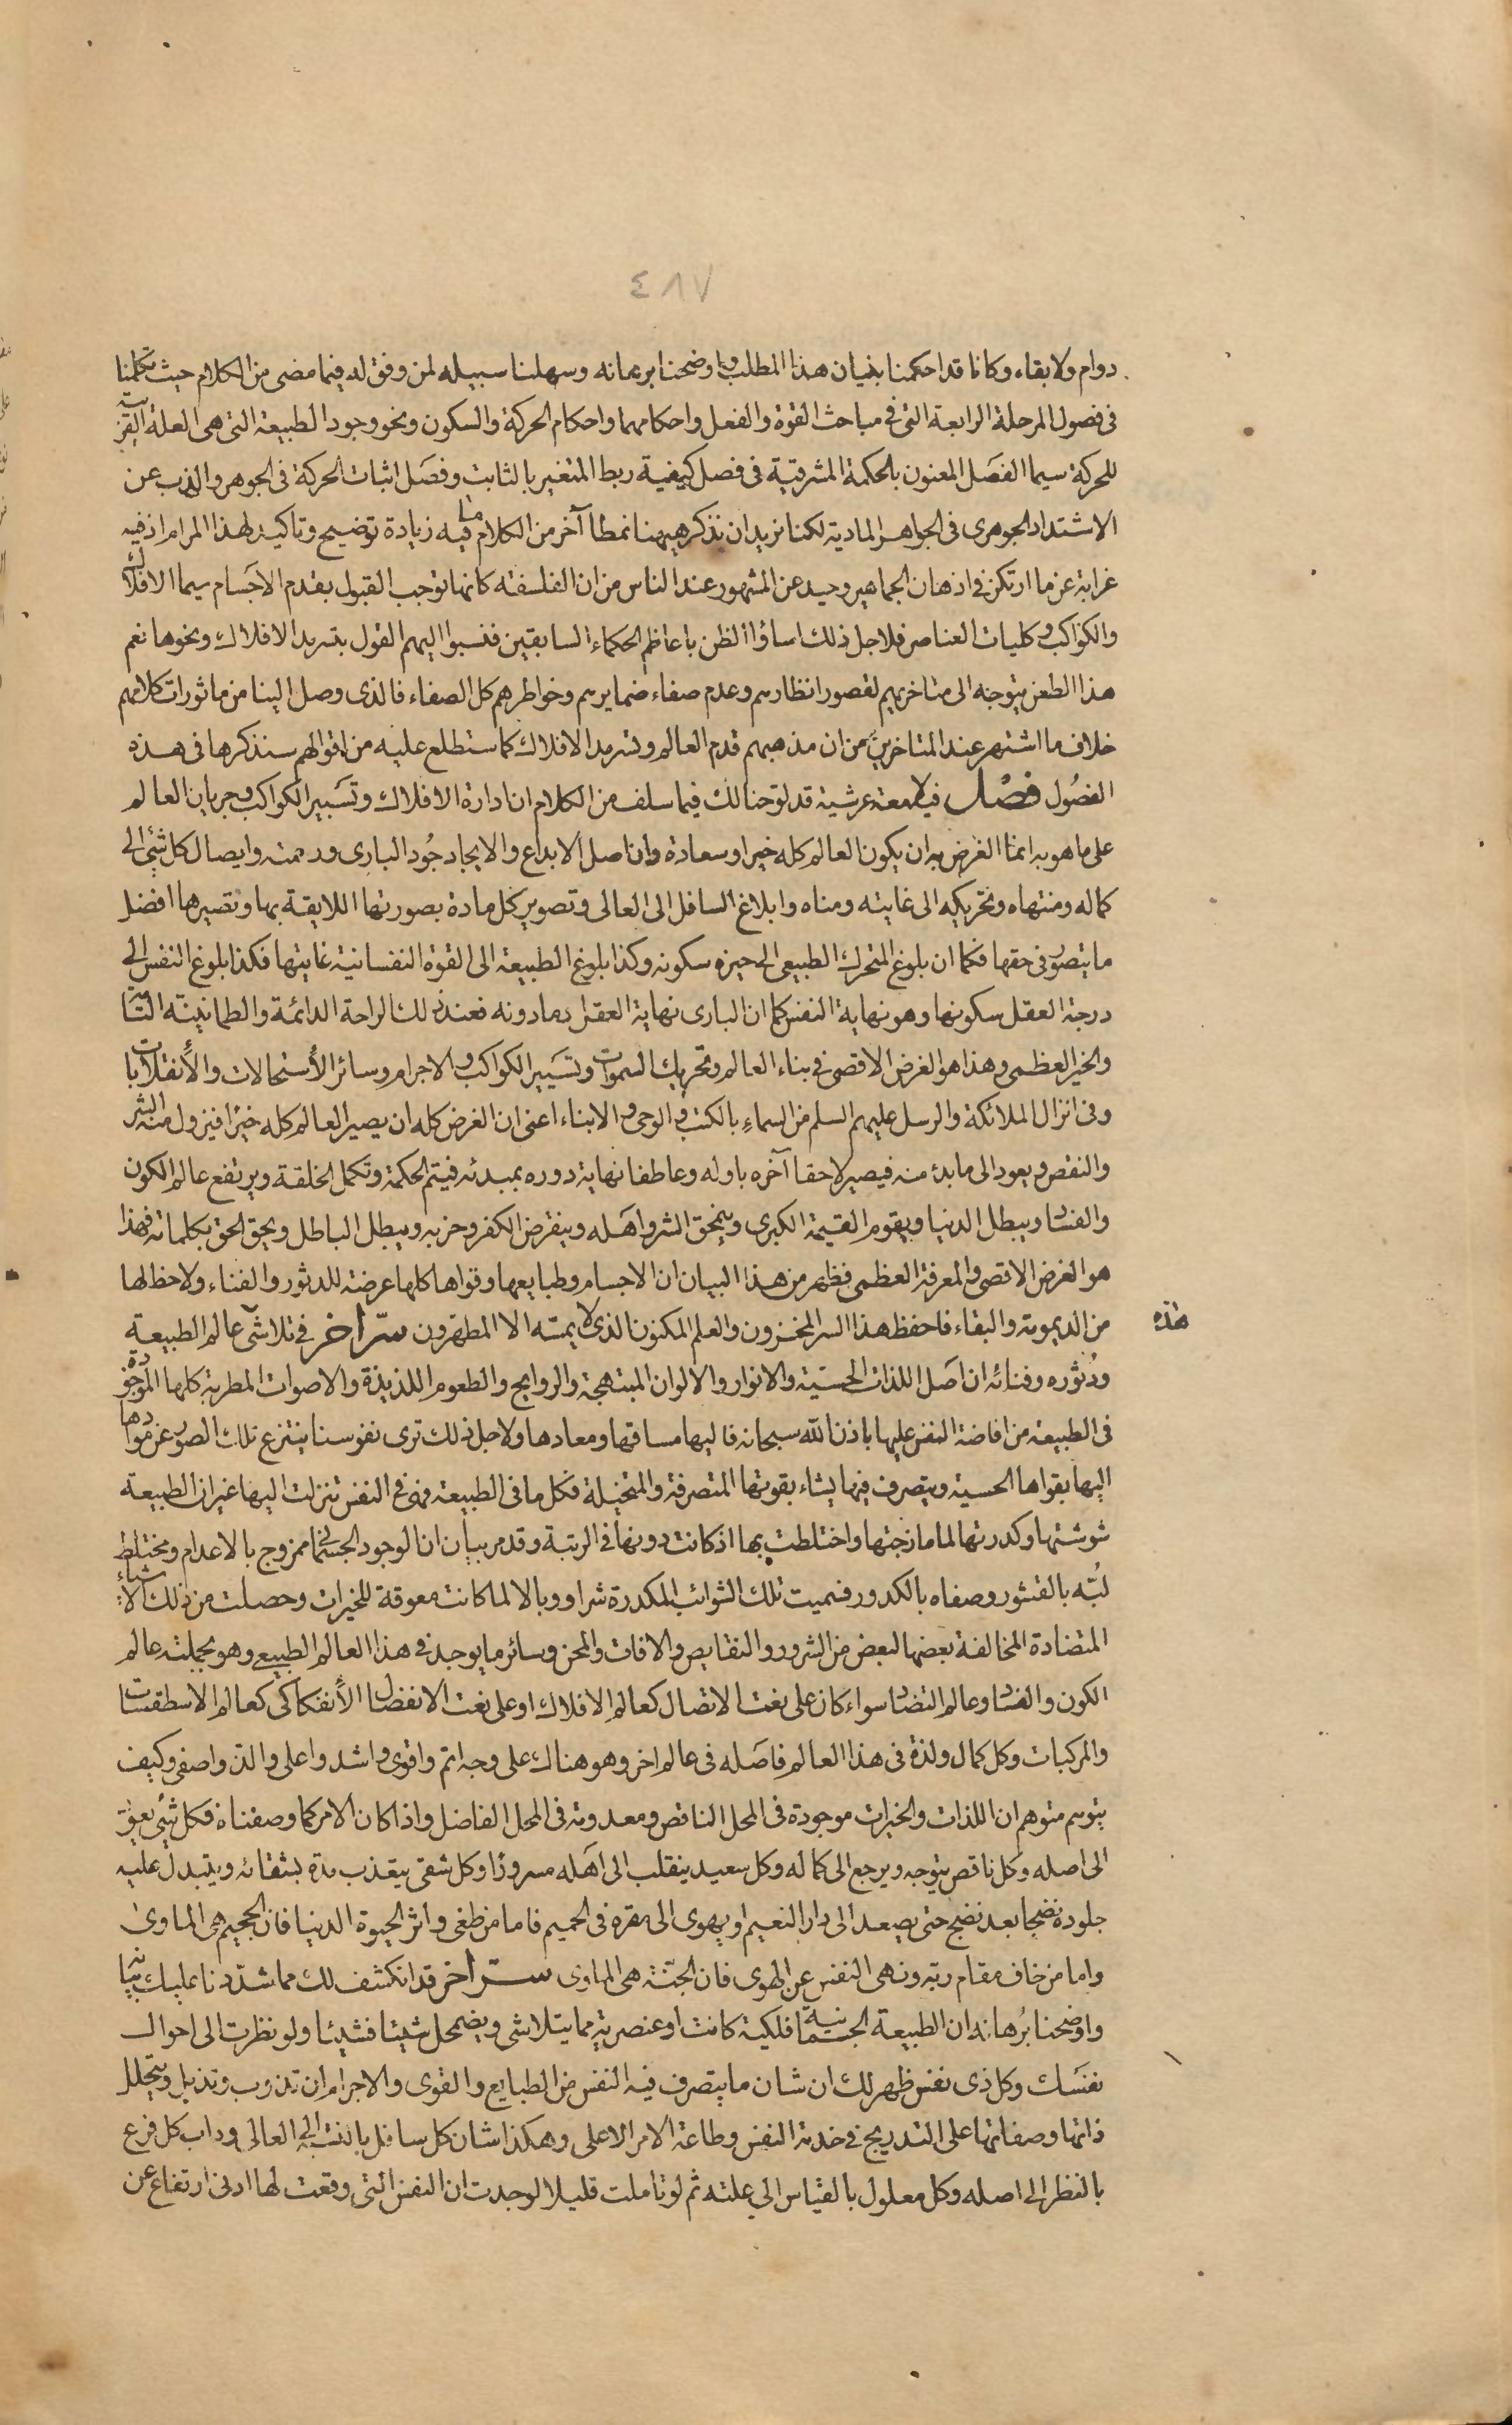 ٤٨٧
دوام ولا بقاء وكانا قد احكمنا بنيان هذا المطلب واوضحنا برهانه وسهلنا سبيله لمن وفق له فيما مضى من الكلام حيث تكلمنا
فى فصول المرحلة الرابعة التى فى مباحث القوة والفعل واحكامهما واحكام الحركة والسكون ونحو وجود الطبيعة التى هى العلة القريبة
للحركة سيما الفصل المعنون بالحكمة المشرقية فى فصل كيفية ربط المتغير بالثابت وفصل اثبات الحركة فى الجوهر والذب عن
الاشتداد الجوهرى فى الجواهر المادية لكنا نريد ان نذكر ههنا نمطا آخر من الكلام فيه زيادة توضيح وتاكيد لهذا المرام اذ فيه
غرابة عن ما ارتكن فى اذهان الجماهير وحيد عن المشهور عند الناس من ان الفلسفة كانها توجب القبول بقدم الاجسام سيما الافلاك
والكواكب وكليات العناصر فلاجل ذلك اساؤا الظن باعاظم الحكماء السابقين فنسبوا اليهم القول بتسرمد الافلاك ونحوها نعم
هذا الطعن يتوجه الى متاخريهم لقصور انظارهم وعدم صفاء ضمايرهم وخواطرهم كل الصفاء فالذى وصل الينا من ماثورات كلامهم
خلاف ما اشتهر عند المتاخرين من ان مذهبهم قدم العالم وتسرمد الافلاك كما ستطلع عليه من اقوالهم سنذكرها فى هذه
الفصول فصل فيه لامعة عرشية قد لوّحنا لك فيما سلف من الكلام ان ادارة الافلاك وتسيير الكواكب وجريان العالم
على ما هو به انما الغرض به ان يكون العالم كله خيرا وسعادة وان اصل الابداع والايجاد جُود البارى ورحمته وايصال كل شئ الى
كماله ومنتهاه وتحريكه الى غايته ومناه وابلاغ السافل الى العالى وتصوير كل مادة بصورتها اللايقة بها وتصيرها افضل
ما يتصور فى حقها فكما ان بلوغ المتحرك الطبيعى الى حيزه سكونه وكذا بلوغ الطبيعة الى القوة النفسانية غايتها فكذا بلوغ النفس الى
درجة العقل سكونها وهو نهاية النفس كما ان البارى نهاية العقل بما دونه فعند ذلك الراحة الدائمة والطمانينة التامة
والخير العظمى وهذا هو الغرض الاقصى فى بناء العالم وتحريك السموات وتسيير الكواكب والاجرام وسائر الأستحالات والأنقلابات
وفى انزال الملائكة والرسل عليهم السلم من السماء بالكتب والوحى والابناء اعنى ان الغرض كله ان يصير العالم كله خيرا فيزول منه الشر
والنقص ويعود الى ما بدئ منه فيصير لاحقا آخره باوله وعاطفا نهاية دوره بمبدئه فيتم الحكمة وتكمل الخلقة ويرتفع عالم الكون
والفساد ويبطل الدنيا ويقوم القيمة الكبرى وينمحق الشر واهله وينقرض الكفر وحزبه ويبطل الباطل ويحق الحق بكلماته فهذا
هو الغرض الاقصى والمعرفة العظمى فظهر من هذا البيان ان الاجسام وطبايعها وقواها كلها عرضة للدثور والفناء ولا حظ لها
من الديمومة والبقاء فاحفظ هذا السر المخزون والعلم المكنون الذى لا يمسّه الا المطهرون سرّ اخر فى تلاشى عالم الطبيعة
هذه
ودُثوره وفنائه ان اصل اللذات الحسيّة والانوار والالوان المبتهجة والروايح والطعوم اللذيذة والاصوات المطربة كلها الموجودة
فى الطبيعة من افاضة النفس عليها باذن الله سبحانه فاليها مساقها ومعادها ولاجل ذلك ترى نفوسنا ينتزع تلك الصور عن موادها
اليها بقواها الحسية ويتصرف فيها يشاء بقوتها المتصرفة والمتخيلة فكل ما فى الطبيعة فهو فى النفس تنزلت اليها غير ان الطبيعة
شوشتها وكدرتها لما مازجتها واختلطت بها اذ كانت دونها فى الرتبة وقد مر بيان ان الوجود الجسمانى ممزوج بالاعدام ومختلط
لبّه بالقشور وصفاه بالكدور فسميت تلك الشوائب المكدرة شرا ووبالا لما كانت معوقة للخيرات وحصلت من ذلك الاشياء
المتضادة المخالفة بعضها لبعض من الشرور والنقايص والافات والمحن وسائر ما يوجد فى هذا العالم الطبيعى وهو بجملته عالم
الكون والفساد وعالم التضاد سواء كان على نعت الاتصال كعالم الافلاك او على نعت الانفصال الأنفكاكى كعالم الاسطقسات
والمركبات وكل كمال ولذة فى هذا العالم فاصله فى عالم اخر وهو هناك على وجه اتم واقوى واشد واعلى والذ واصفى وكيف
يتوهم متوهم ان اللذات والخيرات موجودة فى المحل الناقص ومعدومة فى المحل الفاضل واذا كان الامر كما وصفناه فكل شئ يعود
الى اصله وكل ناقص يتوجه ويرجع الى كماله وكل سعيد ينقلب الى اهله مسرورًا وكل شقى يتعذب مدة بشقائه ويتبدل عليه
جلوده نضجا بعد نضج حتى يصعد الى دار النعيم او يهوى الى مقره فى الحميم فاما من طغى واثر الحيوة الدنيا فان الجحيم هى الماوى
واما من خاف مقام ربّه ونهى النفس عن الهوى فان الجنّة هى الماوى سرّ اخر قد انكشف لك مما شدّدنا عليك بنيانه
واوضحنا بُرهانه ان الطبيعة الجسمانية فلكية كانت او عنصرية مما يتلاشى ويضمحل شيئا فشيئا ولو نظرت الى احوال
نفسك وكل ذى نفس ظهر لك ان شان ما يتصرف فيه النفس من الطبايع والقوى والاجرام ان تذوب وتذبل ويتحلل
ذاتها وصفاتها على التدريج فى خدمة النفس وطاعة الامر الاعلى وهكذا شان كل سافل بالنسبة الى العالى وداب كل فرع
بالنظر الى اصله وكل معلول بالقياس الى علته ثم لو تاملت قليلا لوجدت ان النفس التى وقعت لها ادنى ارتفاع عن